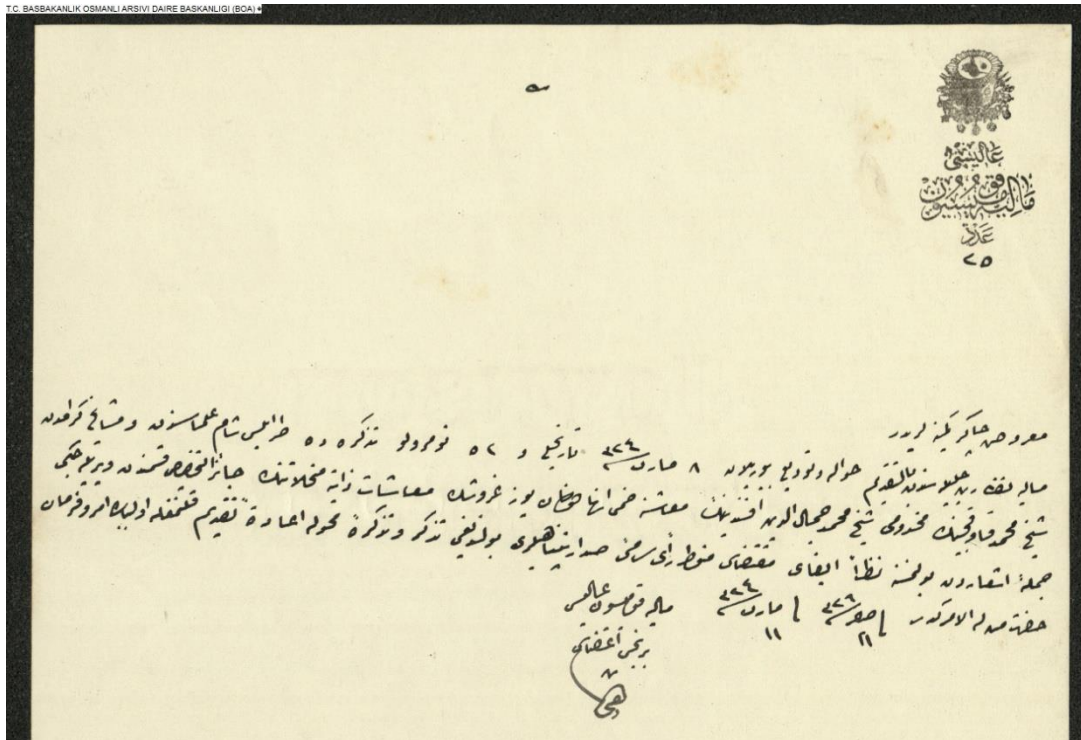 T.C. BASBAKANLIK OSMANLI ARSIVI DAIRE BASKANLIGI (BOA)
عاليسى
ماليه قوميسيون
عدد
٢٥
معروض چاكر كمينه لريدر
ماليه نظارت جليله سندن تقديم حواله و توديع بيوريلان ٨ مارت ٣٢٤ تاريخلى و ٥٢ نومرولو تذكره ده طرابلس شام علماسندن و مشايخ كرامدن
شيخ محمد قاوقجينك مخدومى شيخ محمد جمال الدين افندينك معاشنه ضمى انها اولنان يوز غروشك معاشات ذاتيه محلولاتنك جائز التخصيص قسمندن ويريله جكى
جمله اشعاردن بولنمسنه نظرا ايفاى مقتضاى منوط رأى سامئ صدارتپناهيلرى بولنديغى تذكر و تذكره محوله اعادة تقديم قلنمغله اولبابده امر و فرمان
حضرت من له الامركدر ٢١ صفر ٣٢٦ ١١ مارت ٣٢٤
ماليه قوميسيون عاليسى
برنجى اعضاسى